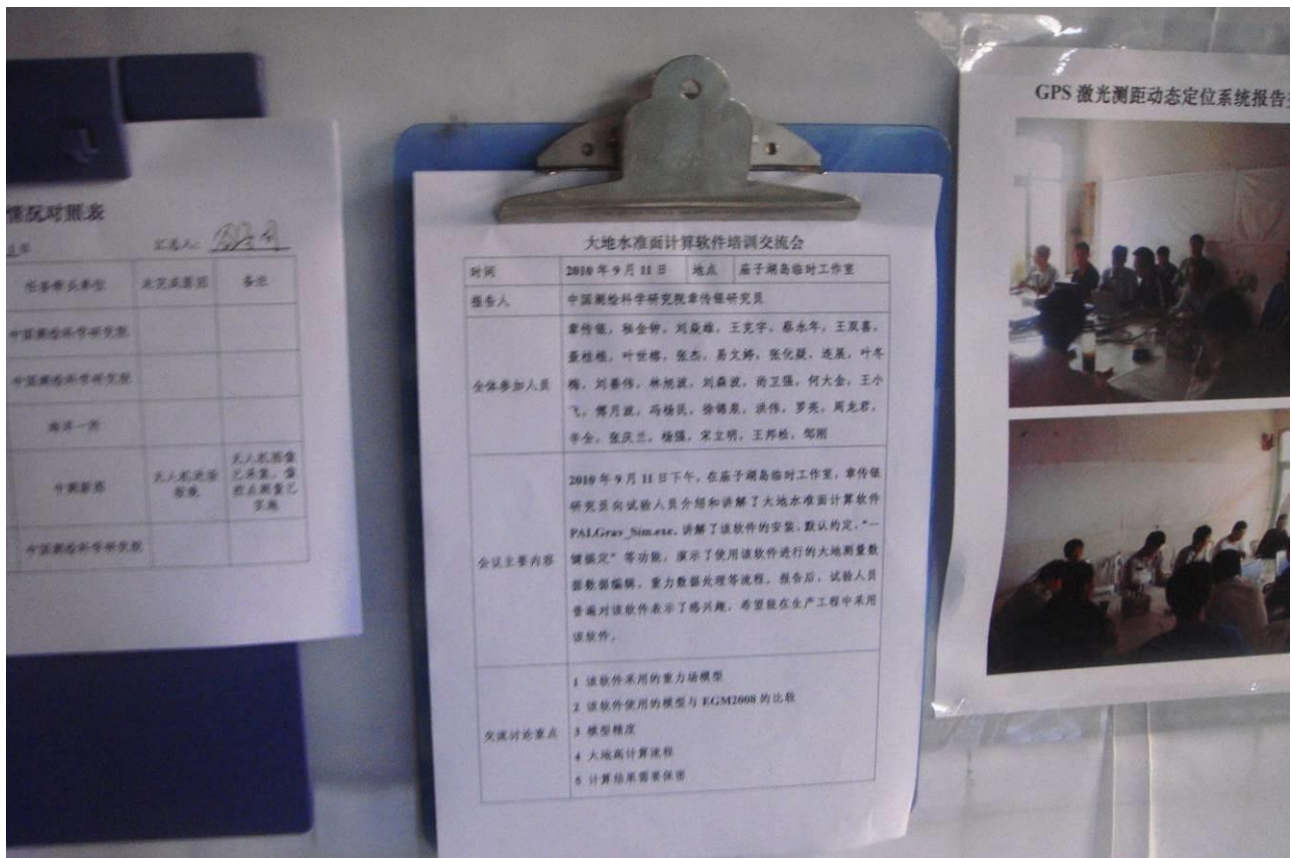 情况对照表
汇总人：
任务牵头单位 未完成原因 备注
中国测绘科学研究院
中国测绘科学研究院
海洋一所
中测新图
无人机图像
已采集，像
控点测量已
实施
中国测绘科学研究院
大地水准面计算软件培训交流会
时间 2010 年 9 月 11 日 地点 庙子湖岛临时工作室
报告人 中国测绘科学研究院章传银研究员
全体参加人员
章传银，杨金钟，刘焱雄，王克宇，蔡永年，王双喜，
聂桂根，叶世榕，张杰，易文婷，张化疑，连展，叶冬
梅，刘善伟，林旭波，刘森波，尚卫强，何大金，王小
飞，傅月波，冯杨民，徐锦泉，洪伟，罗亮，周龙君，
辛全，张庆兰，杨强，宋立明，王邦松，邹刚
会议主要内容
2010 年 9 月 11 日下午，在庙子湖岛临时工作室，章传银
研究员向试验人员介绍和讲解了大地水准面计算软件
PALGrav_Sim.exe，讲解了该软件的安装、默认约定、“一
键搞定”等功能，演示了使用该软件进行的大地测量数
据数据编辑，重力数据处理等流程。报告后，试验人员
普遍对该软件表示了感兴趣，希望能在生产工程中采用
该软件。
交流讨论重点
1 该软件采用的重力场模型
2 该软件使用的模型与 EGM2008 的比较
3 模型精度
4 大地高计算流程
5 计算结果需要保密
GPS 激光测距动态定位系统报告